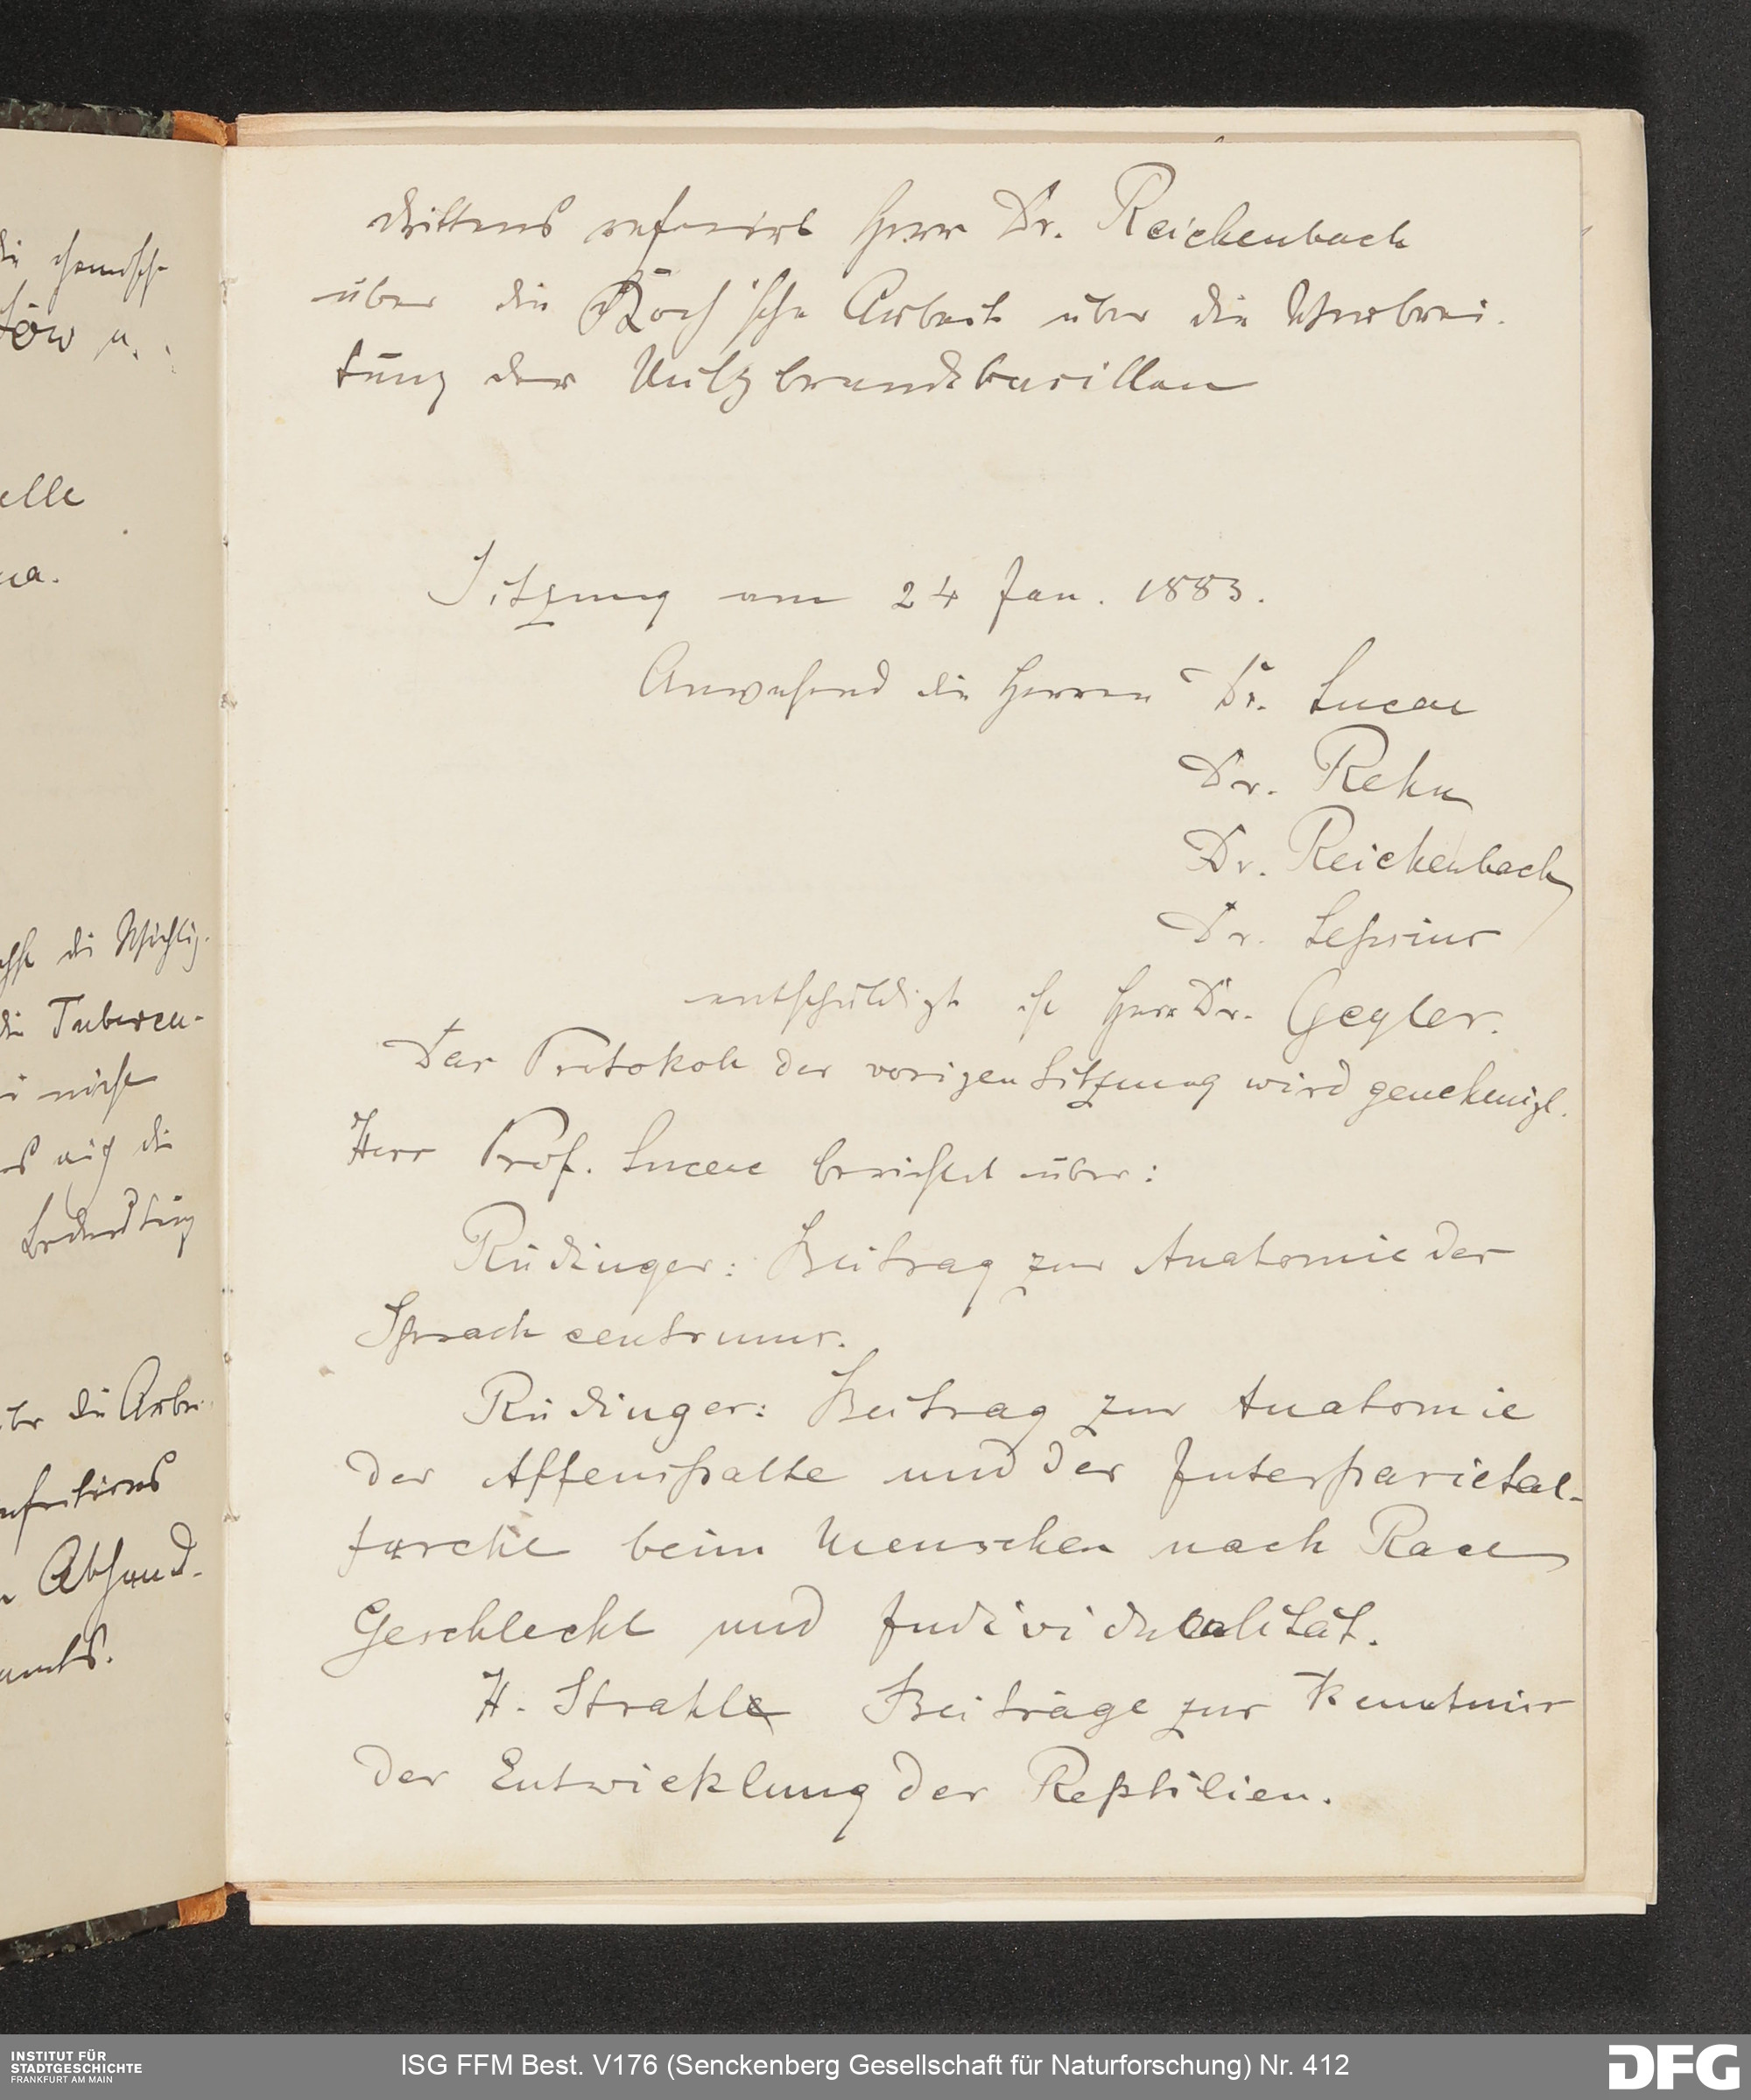 die chemisch
löw u.
elle
na.
die Wichtig-
die Tubercu-
nicht
auch die
Bedeutung
die Arbei
Abhand-
drittens referirt Herr Dr. Reichenbach
über die Koch'sche Arbeit über die Verbrei-
tung der Milzbrandbacillen
Sitzung am 24 Jan. 1883.
Anwesend die Herren Dr. Lucae
Dr. Rehn
Dr. Reichenbach
Dr. Lepsius
entschuldigt ist Herr Dr. Geyler.
Das Protokoll der vorigen Sitzung wird genehmigt.
Herr Prof. Lucae berichtet über:
Rüdinger: Beitrag zur Anatomie des
Sprachcentrums.
Rüdinger: Beitrag zur Anatomie
der Affenspalte und der Interparietal-
furche beim Menschen nach Race
Geschlecht und Individualität.
H. Strahl Beiträge zur Kenntnis
der Entwicklung der Reptilien.
INSTITUT FÜR
STADTGESCHICHTE
FRANKFURT AM MAIN
ISG FFM Best. V176 (Senckenberg Gesellschaft für Naturforschung) Nr. 412
DFG